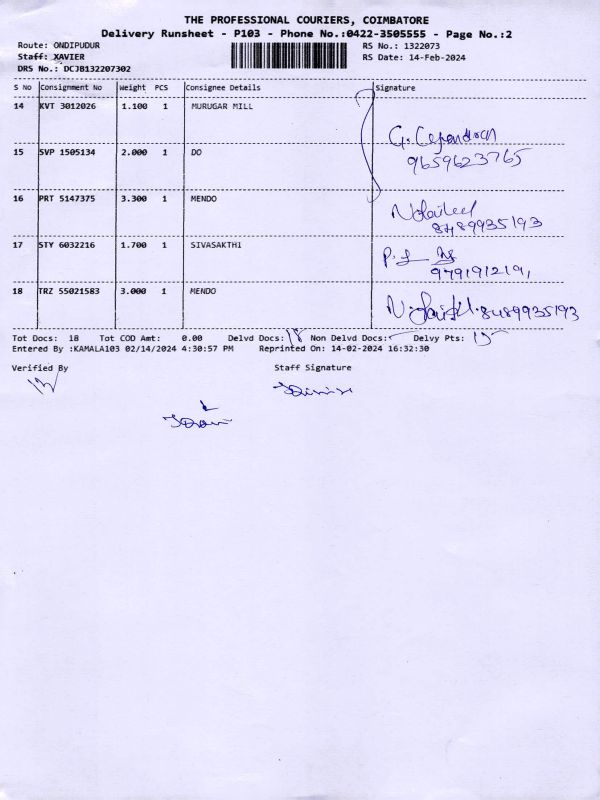 THE PROFESSIONAL COURIERS, COIMBATORE
Delivery Runsheet - P103 - Phone No.:0422-3505555 - Page No.:2
Route: ONDIPUDUR RS No.: 1322073
Staff: XAVIER RS Date: 14-Feb-2024
DRS No.: DCJB132207302
S No Consignment No Weight PCS Consignee Details Signature
14 KVT 3012026 1.100 1 MURUGAR MILL
15 SVP 1505134 2.000 1 DO
9659623765
16 PRT 5147375 3.300 1 MENDO
8489935193
17 STY 6032216 1.700 1 SIVASAKTHI
9791912191
18 TRZ 55021583 3.000 1 MENDO
8489935193
Tot Docs: 18 Tot COD Amt: 0.00 Delvd Docs: 18 Non Delvd Docs: Delvy Pts: 15
Entered By :KAMALA103 02/14/2024 4:30:57 PM Reprinted On: 14-02-2024 16:32:30
Verified By Staff Signature